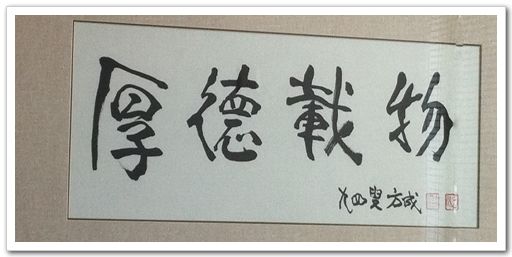 厚德載物
九四叟方成